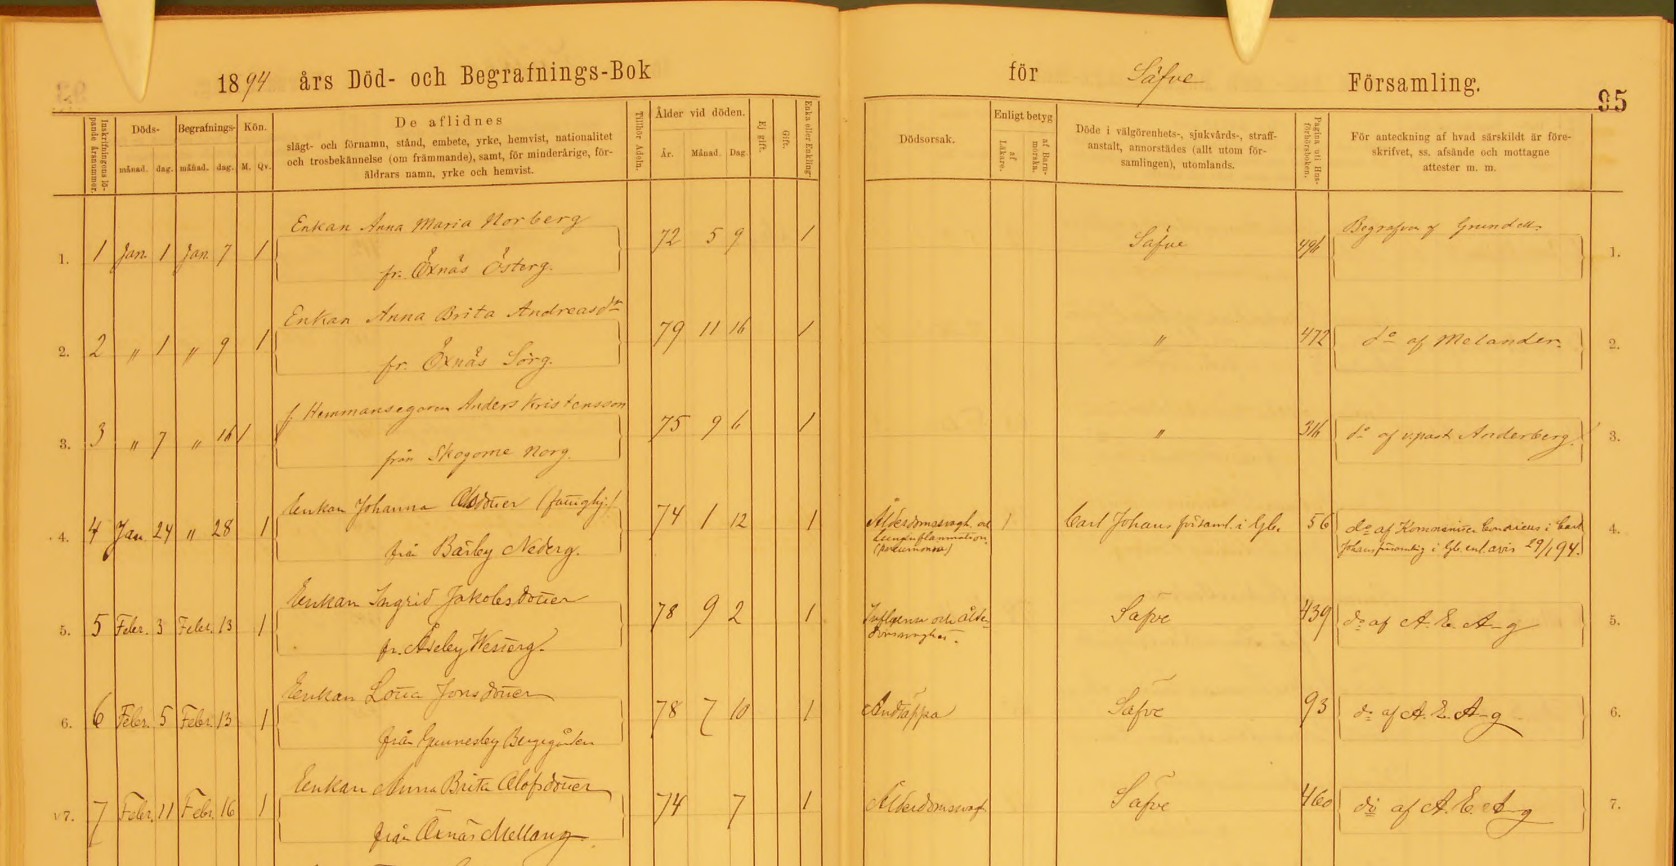 1894 års Död- och Begrafnings-Bok för Säfve Församling. 95
Inskrifningens lö-
pande årsnummer.
Döds-
månad. dag.
Begrafnings-
månad. dag.
Kön.
M. Qv.
De aflidnes
slägt- och förnamn, stånd, embete, yrke, hemvist, nationalitet
och trosbekännelse (om främmande), samt, för minderårige, för-
äldrars namn, yrke och hemvist.
Tillhör Adeln.
Ålder vid döden.
År. Månad. Dag.
Ej gift.
Gift.
Enka eller Enkling.
Dödsorsak.
Enligt betyg
af Läkare.
af Barn-
morska.
Döde i välgörenhets-, sjukvårds-, straff-
anstalt, annorstädes (allt utom för-
samlingen), utomlands.
Pagina uti Hus-
förhörsboken.
För anteckning af hvad särskildt är före-
skrifvet, ss. afsände och mottagne
attester m. m.
Enkan Anna Maria Norberg
Begrafven af
1. 1 Jan. 1 Jan. 7 1 72 5 9 1 Säfve 496 1.
fr. Öxnäs Österg.
Enkan Anna Brita Andreasdr
2. 2 " 1 " 9 1 79 11 16 1 " 472 do af Melander. 2.
fr. Öxnäs Sörg.
f Hemmansegaren Anders Kristensson
3. 3 " 7 " 16 1 75 9 6 1 " 316 do af Anderberg. 3.
från Skogome Norg.
Enkan Johanna Olsdotter (fattighj.)
4. 4 Jan. 24 " 28 1 74 1 12 1 Ålderdomssvagh. och 1 Carl Johans församl. i Gbg. 56 do af i Carl 4.
Lunginflammation
(pneumonia)
Johans församling i Gbg enl. avis 29/1 94.
från Bärby Nederg.
Enkan Ingrid Jakobsdotter
5. 5 Febr. 3 Febr. 13 1 78 9 2 1 Influensa och ålder- Säfve 439 do af A. E. A-g 5.
domsvaghet.
fr. Åseby Westerg.
Enkan Lotta Jonsdotter
6. 6 Febr. 5 Febr. 13 1 78 7 10 1 Andtäppa Säfve 93 do af A. E. A-g 6.
från Gunnesby Bergsgården
Enkan Anna Brita Olofsdotter
7. 7 Febr. 11 Febr. 16 1 74 7 1 Ålderdomssvag Säfve 460 do af A. E. A-g 7.
från Öxnäs Mellang